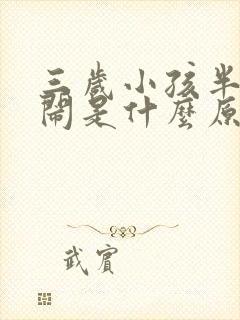 三歲小孩半
鬧是什麼原
武賓